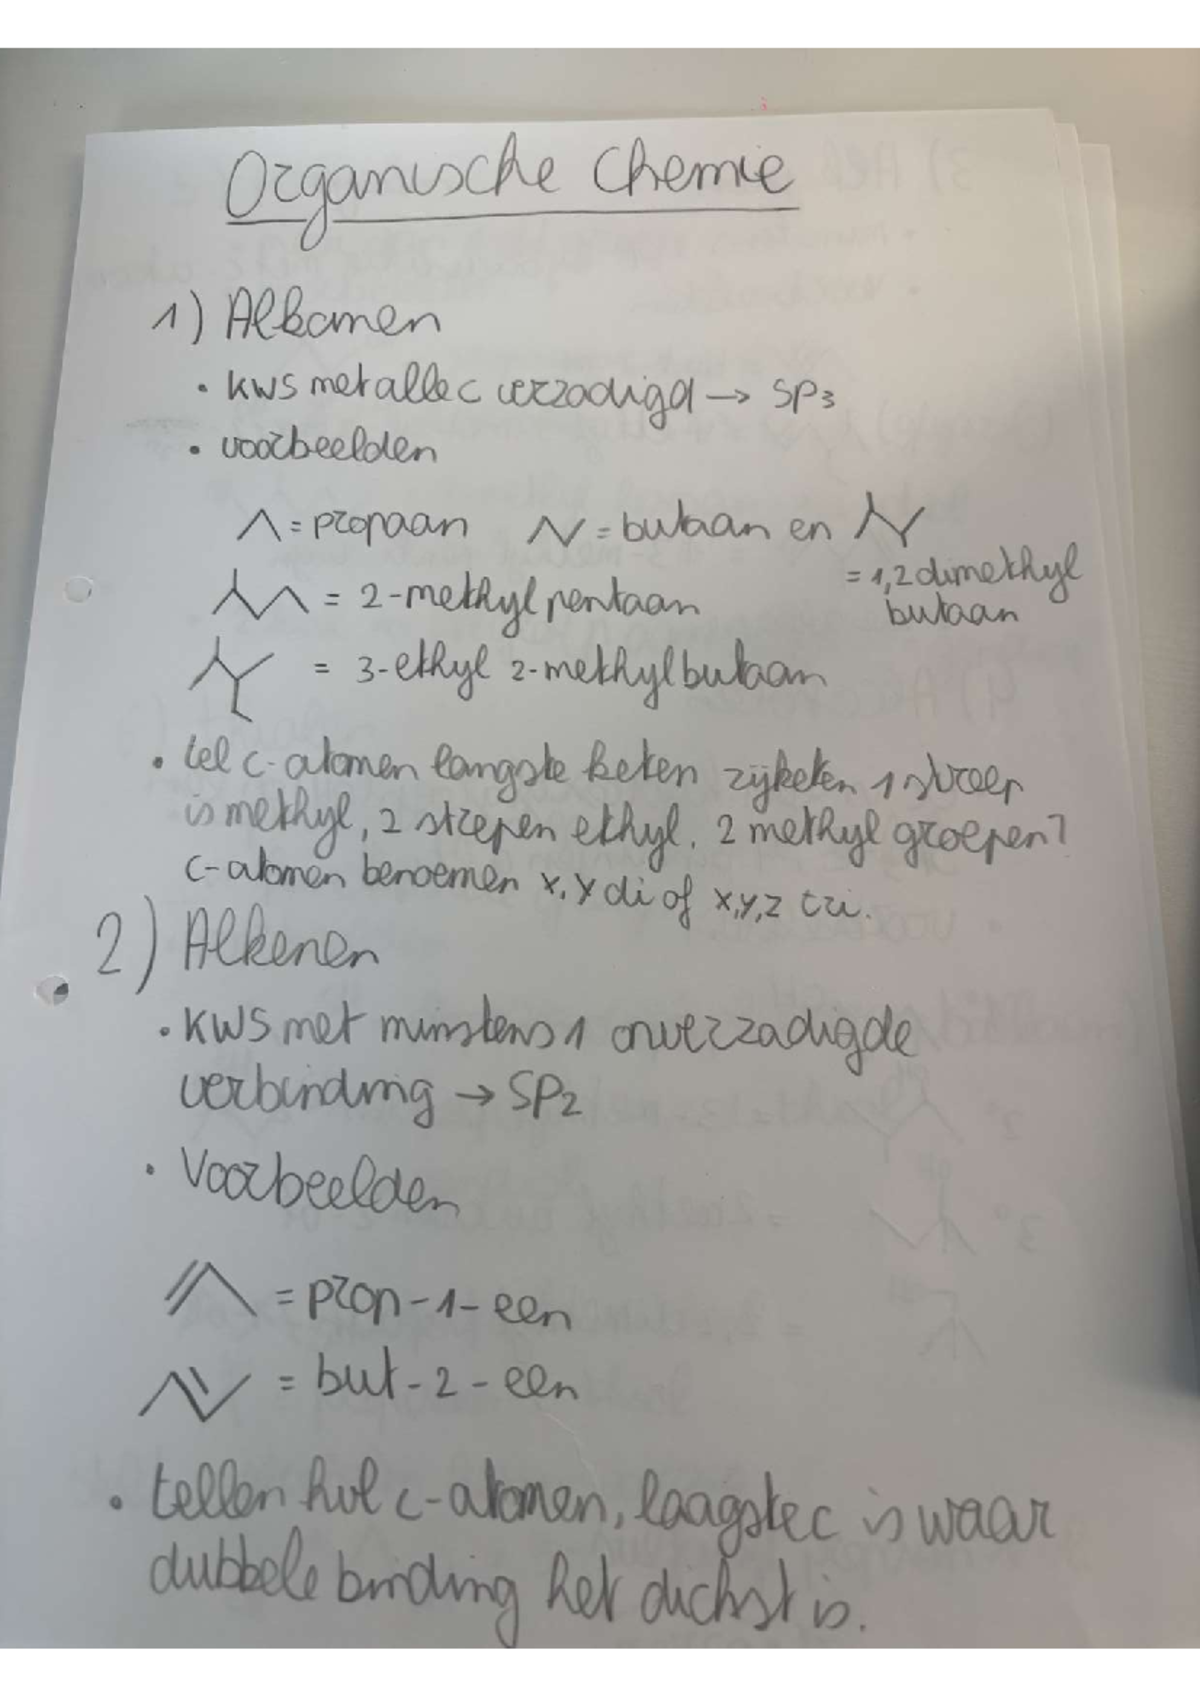 Organische Chemie
1) Alkanen
• KWS met alle c verzadigd → SP3
• voorbeelden
= propaan = butaan en
= 1,2 dimethyl
butaan
= 2-methylpentaan
= 3-ethyl 2-methylbutaan
• tel c-atomen langste keten zijketen 1 streep
is methyl, 2 strepen ethyl. 2 methyl groepen?
c-atomen benoemen x,y di of x,y,z tri.
2) Alkenen
• KWS met minstens 1 onverzadigde
verbinding → SP2
• Voorbeelden
= prop-1-een
= but-2-een
• tellen hvl c-atomen, laagste c is waar
dubbele binding het dichst is.